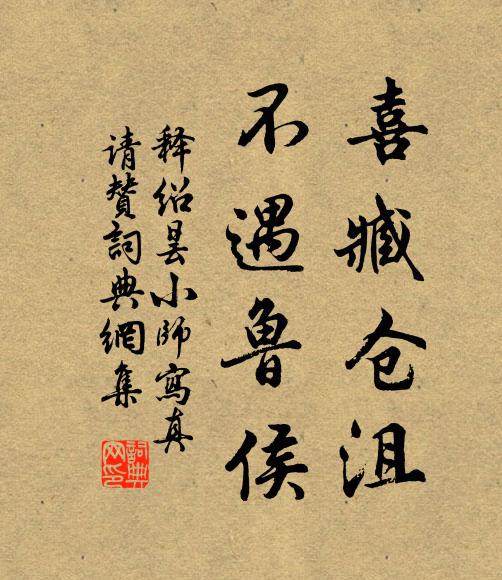 喜臧仓沮
不遇鲁侯
释绍昙小师寫真
请赞詞典網集
詞典
网印